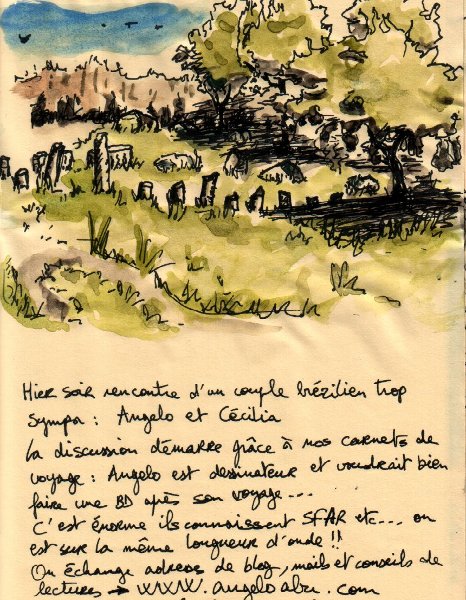 Hier soir rencontre d'un couple brézilien trop
sympa : Angelo et Cécilia
La discussion démarre grâce à nos carnets de
voyage : Angelo est dessinateur et voudrait bien
faire une BD après son voyage...
C'est énorme ils connaissent SFAR etc... on
est sur la même longueur d'onde !!
On échange adress de blog, mails et conseils de
lectures → www.angeloabu.com